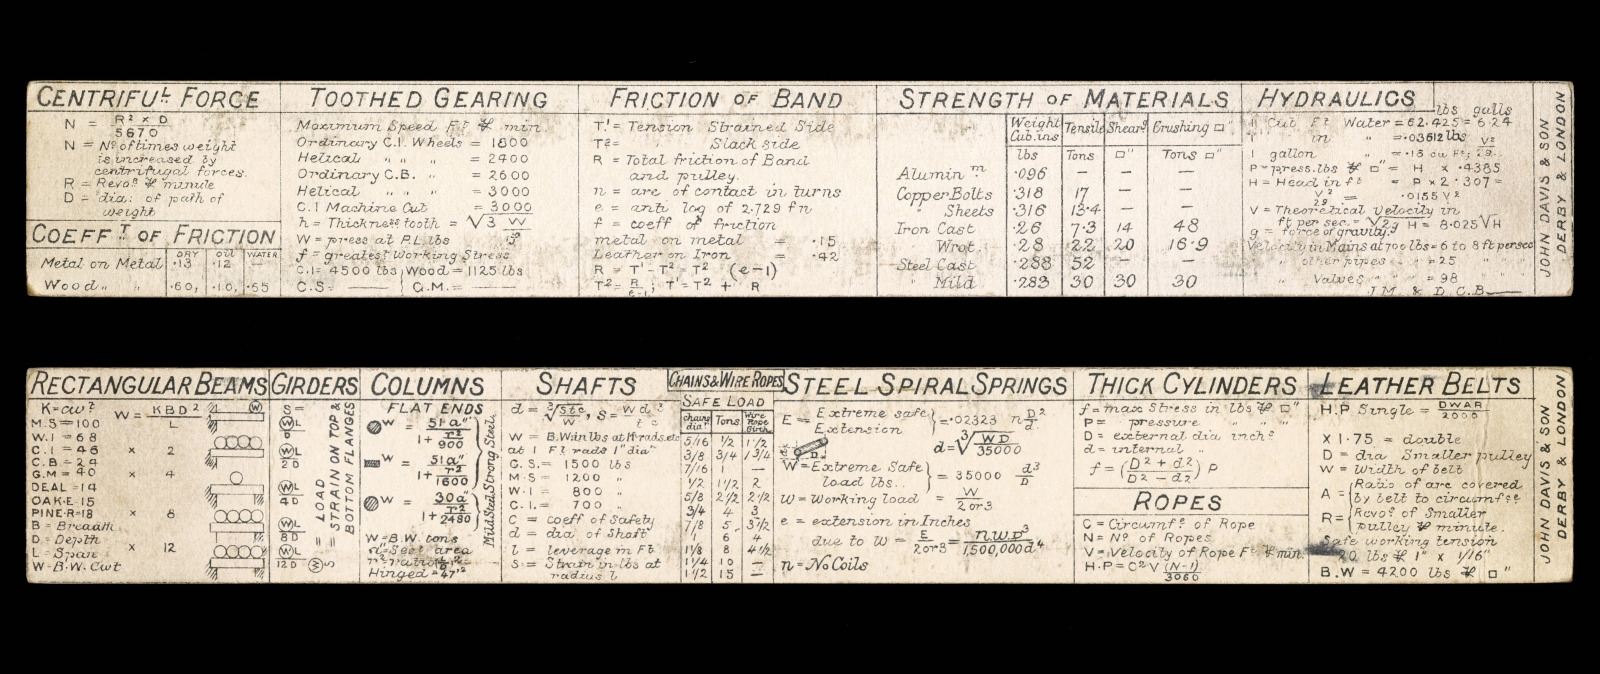 CENTRIFUL FORCE
N = R² x D
5670
N = No of times weight
is increased by
centrifugal forces.
R = Revos ℔ minute
D = dia: of path of
weight
COEFFT OF FRICTION
DRY OIL WATER
Metal on Metal ·13 ·12 —
Wood „ „ ·60, ·10, ·65
TOOTHED GEARING
Maximum Speed Ft ℔ min.
Ordinary C.I. Wheels = 1800
Helical „ „ = 2400
Ordinary C.B. „ = 2600
Helical „ „ = 3000
C.I Machine Cut = 3000
h = Thickness tooth = √3 W
W = press at P.L lbs
f = greatest Working Stress
C.I = 4500 lbs Wood = 1125 lbs
C.S. —— G.M. = ——
FRICTION OF BAND
T¹ = Tension Strained Side
T² = Slack side
R = Total friction of Band
and pulley.
n = arc of contact in turns
e = anti log of 2.729 f n
f = coeff of friction
metal on metal = ·15
Leather on Iron = ·42
R = T¹ - T² = T² (e-1)
T² = R/e-1 ; T¹ = T² + R
STRENGTH OF MATERIALS
Weight Cub.ins Tensile Shears Crushing □"
lbs Tons □" Tons □"
Aluminm ·096 — — —
Copper Bolts ·318 17 — —
„ Sheets ·316 13·4 — —
Iron Cast ·26 7·3 14 48
„ Wrot. ·28 22 20 16·9
Steel Cast ·288 52 — —
„ Mild ·283 30 30 30
HYDRAULICS
lbs galls
1 Cub Ft Water = 62·425 = 6·24
1 „ in „ = ·03612 lbs
1 gallon „ = ·16 cu Ft;
P = press.lbs ℔ □" = H x ·4335
H = Head in ft = P x 2·307 =
V²/2g = ·0155 V²
V = Theoretical Velocity in
ft per sec. = √2g H = 8·025 √H
g = force of gravity.
Velocity in Mains at 700 lbs = 6 to 8 ft per sec
„ other pipes „ = 25 „
„ Valves „ „ = 98 „
J.M. & D.C.B.
JOHN DAVIS & SON
DERBY & LONDON
RECTANGULAR BEAMS
K = cwt W = KBD²/L
M.S = 100
W.I = 68
C.I = 46 x 2
C.B = 24
G.M = 40 x 4
DEAL = 14
OAK·E·15
PINE·R·18 x 8
B = Breadth
D = Depth
L = Span x 12
W = B.W. Cwt
GIRDERS
S =
WL/D
WL/2D
WL/4D
WL/8D
WL/12D
W = LOAD
S = STRAIN ON TOP &
BOTTOM FLANGES
COLUMNS
FLAT ENDS
W = 51a"
1 + r²/900
W = 51a"
1 + r²/1600
W = 30a"
1 + r²/2480
Mild Steel, Strong Steel,
W = B.W. tons
a" = Sect area
Hinged =
SHAFTS
W = B.W in lbs at Ft rads. etc
at 1 Ft rads 1" dia"
C. S. = 1500 lbs
M·S = 1200 „
W·I = 800 „
C.I. = 700 „
C = coeff of Safety
d = dia of Shaft
l = leverage in Ft
S = Strain in lbs at
radius l
CHAINS & WIRE ROPES
SAFE LOAD
chains dia Tons Wire Rope Girth
5/16 1/2 1 1/2
3/8 3/4 1 3/4
7/16 1 —
1/2 1 1/2 2
5/8 2 1/2 2 1/2
3/4 4 3
7/8 5 3 1/2
1 6 4
1 1/8 8 4 1/2
1 1/4 10 —
1 1/2 15 —
STEEL SPIRAL SPRINGS
E = Extreme safe
Extension = ·02323 n D²/d
d = ³√WD/35000
W = Extreme Safe
load lbs. = 35000 d³/D
W = Working load = W/2 or 3
e = extension in Inches
due to W = E/2 or 3 = nWD³/1,500,000d⁴
n = No Coils
THICK CYLINDERS
f = max Stress in lbs ℔ □"
P = pressure „ „ „
D = external dia inchs
d = internal „ „
f = (D² + d²/D² - d²) P
ROPES
C = Circumfe of Rope
N = No of Ropes
V = Velocity of Rope Ft ℔ min.
H·P = C²V (N-1)/3060
LEATHER BELTS
H.P Single = DWAR/2000
X 1·75 = double
D = dia Smaller pulley
W = Width of belt
A = Ratio of arc covered
by belt to circumfce
R = Revos of Smaller
pulley ℔ minute.
Safe working tension
20 lbs ℔ 1" x 1/16"
B.W = 4200 lbs ℔ □"
JOHN DAVIS & SON
DERBY & LONDON